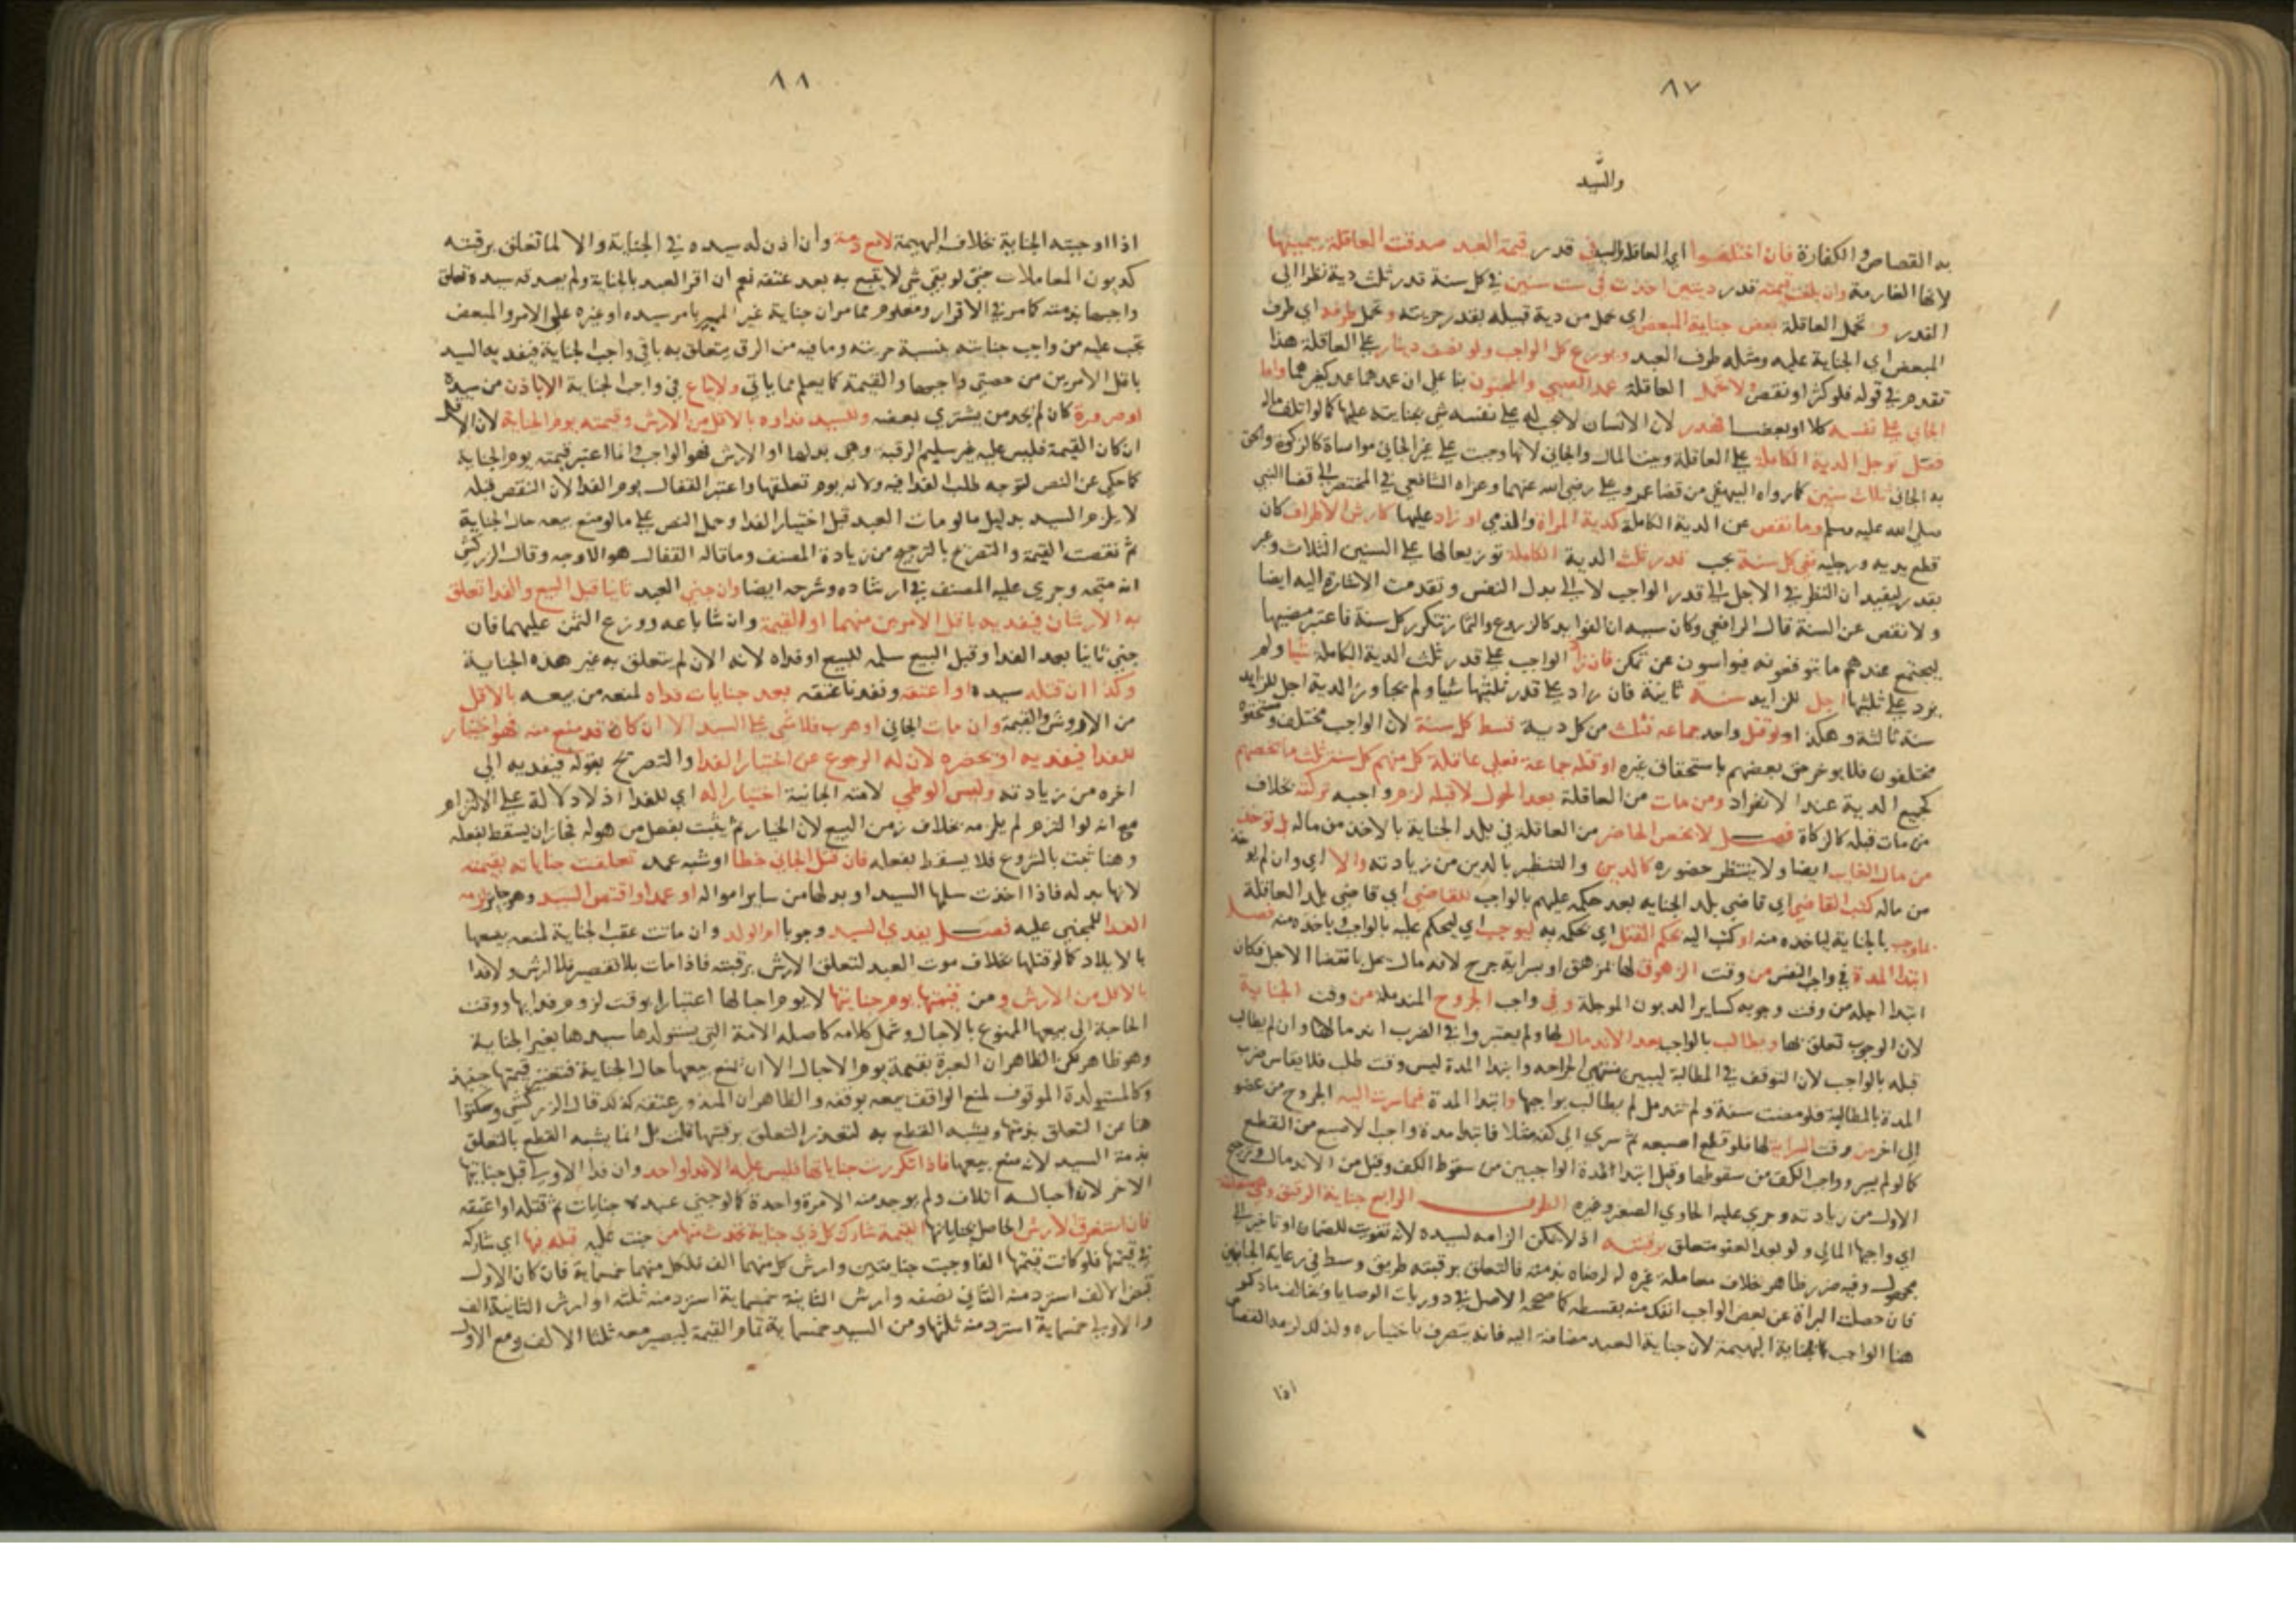 ٨٧
والسيد
به القصاص والكفارة فان اختلفوا اي العاقلة والسيد في قدر قيمة العبد صدقت العاقلة بيمينها
لانها الغارمة وان بلغت قيمته قدر ديتين اخذت في ست سنين في كل سنة قدر ثلث دية نظرا الى
القدر و تحمل العاقلة بعض جناية المبعض اي تحمل من دية قتيله بقدر حريته وتحمل طرفه اي طرف
المبعض اي الجناية عليه ومثله طرف العبد ويوزع كل الواجب ولو نصف دينار على العاقلة هذا
تقدم في قوله فلو كثر او نقص ولا تحمل العاقلة عمد الصبي والمجنون بنا على ان عمدهما عمد كغيرهما واما
الجاني على نفسه كلا او بعضا فهدر لان الانسان لا يجب له على نفسه شي بجنايته عليها كما لو اتلف ماله
فصل توجل الدية الكاملة على العاقلة وبيت المال والجاني لانها وجبت على غير الجاني مواساة كالزكوة والحق
به الجاني ثلاث سنين كما رواه البيهقي من قضا عمر وعلي رضي الله عنهما وعزاه الشافعي في المختصر الى قضا النبي
صلى الله عليه وسلم وما نقص عن الدية الكاملة كدية المراة والذمي او زاد عليها كارش الاطراف كان
قطع يديه ورجليه ففي كل سنة يجب قدر ثلث الدية الكاملة توزيعا لها على السنين الثلاث وعبر
بقدر ليفيد ان النظر في الاجل الى قدر الواجب لا الى بدل النفس وتقدمت الاشارة اليه ايضا
ولا نقص عن السنة قال الرافعي وكان سببه ان الفوايد كالزروع والثمار تتكرر كل سنة فاعتبر مضيها
ليجتمع عندهم ما يتوقعونه فيواسون عن تمكن فان زاد الواجب على قدر ثلث الدية الكاملة شيا ولم
يزد على ثلثيها اجل للزايد سنة ثانية فان زاد على قدر ثلثيها شيا ولم يجاوز الدية اجل للزايد
سنة ثالثة وهكذا او لو قتل واحد جماعة فثلث من كل دية قسط كل سنة لان الواجب مختلف ومستحقوه
مختلفون فلا يوخر حق بعضهم باستحقاق غيره او قتله جماعة فعلى عاقلة كل منهم كل سنة ثلث ما يخصهم
كجميع الدية عند الانفراد ومن مات من العاقلة بعد الحول لا قبله لزم واجبه تركته بخلاف
من مات قبله كالزكاة فصل لا يختص الحاضر من العاقلة في بلد الجناية بالاخذ من ماله بل توخذ
من مال الغايب ايضا ولا ينتظر حضوره كالدين والتنظير بالدين من زيادته والا اي وان لم يوخذ
من ماله كتب القاضي اي قاضي بلد الجناية بعد حكمه عليهم بالواجب للقاضي اي قاضي بلد العاقلة
بالجناية لياخذه منه او كتب اليه بحكم القتل اي بحكمه به ليوجب اي ليحكم عليه بالواجب وياخذه منه فصل
ابتدا المدة في واجب النفس من وقت الزهوق لها لمزهق او بسراية جرح لانه مال يحل بانقضا الاجل فكان
ابتدا اجله من وقت وجوبه كساير الديون الموجلة وفي واجب الجروح المندملة من وقت الجناية
لان الوجوب تعلق بها ويطالب بالواجب بعد الاندمال لها ولم يعتبروا في الضرب اندمالها وان لم يطالب
قبله بالواجب لان التوقف في المطالبة ليبين منتهى الجراحة وابتدا المدة ليس وقت طلب فلا يقاس ضرب
المدة بالمطالبة فلو مضت سنة ولم تندمل لم يطالب بواجبها وابتدا المدة فيما سرت اليه الجروح من عضو
الى اخر من وقت السراية لها فلو قطع اصبعه ثم سرى الى كفه مثلا فابتدا مدة واجب الاصبع من القطع
كما لو لم يسر وواجب الكف من سقوطها وقيل ابتدا المدة الواجبين من سقوط الكف وقيل من الاندمال وترجيح
الاول من زيادته وجرى عليه الحاوي الصغير وغيره الطرف الرابع جناية الرقيق وهي متعلقة
اي واجبها المالي ولو بعد العفو متعلق برقبته اذ لا يمكن الزامه لسيده لانه تفويت للضمان او تاخير الى
مجهول وفيه ضرر ظاهر بخلاف معاملة غيره له لرضاه بذمته فالتعلق برقبته طريق وسط في رعاية الجانبين
فان حصلت البراة عن بعض الواجب انفك منه بقسطه كما صححه الاصل في دوريات الوصايا وتخالف ما ذكر
هنا الواجب بجناية البهيمة لان جناية العبد مضافة اليه فانه يتصرف باختياره ولذلك لزمه القصاص
اذا
٨٨
اذا اوجبته الجناية بخلاف البهيمة لا مع ذمة وان اذن له سيده في الجناية والا لما تعلق برقبته
كديون المعاملات حتى لو بقي شي لا يتبع به بعد عتقه نعم ان اقر العبد بالجناية ولم يصدقه سيده تعلق
واجبها بذمته كما مر في الاقرار ومعلوم مما مر ان جناية غير المميز بامر سيده او غيره على الامر والمبعض
يجب عليه من واجب جنايته بنسبة حريته وما فيه من الرق يتعلق به باقي واجب الجناية فيفديه السيد
باقل الامرين من حصتي واجبها والقيمة كما يعلم مما ياتي ولا يباع في واجب الجناية الا باذن من سيده
او ضرورة كان لم يجد من يشتري بعضه وللسيد فداوه بالاقل من الارش وقيمته يوم الجناية لان الاقل
ان كان القيمة فليس عليه غير تسليم الرقبة وهي بدلها او الارش فهو الواجب وانما اعتبر قيمته يوم الجناية
كما حكي عن النص لتوجه طلب الفدا فيه ولانه يوم تعلقها واعتبر القفال يوم الفدا لان النقص قبله
لا يلزم السيد بدليل ما لو مات العبد قبل اختيار الفدا وحمل النص على ما لو منع بيعه حال الجناية
ثم نقصت القيمة والتصريح بالترجيح من زيادة المصنف وما قاله القفال هو الاوجه وقال الزركشي
انه متجه وجرى عليه المصنف في ارشاده وشرحه ايضا وان جنى العبد ثانيا قبل البيع والفدا تعلق
به الارشان فيفديه باقل الامرين منهما او القيمة وان شا باعه ووزع الثمن عليهما فان
جنى ثانيا بعد الفدا وقبل البيع سلمه للبيع او فداه لانه الان لم يتعلق به غير هذه الجناية
وكذا ان قتله سيده او اعتقه ونفذنا عتقه بعد جنايات فداه لمنعه من بيعه بالاقل
من الاروش والقيمة وان مات الجاني او هرب فلا شي على السيد الا ان كان قد منع منه فهو اختيار
للفدا فيفديه او يحضره لان له الرجوع عن اختيار الفدا والتصريح بقوله فيفديه الى
اخره من زيادته وليس الوطي لامته الجانية اختيارا له اي للفدا اذ لا دلالة على الالتزام
مع انه لو التزم لم يلزمه بخلاف زمن البيع لان الخيار ثم يثبت بفعل من هو له فجاز ان يسقط بفعله
وهنا ثبت بالشروع فلا يسقط بفعله فان قتل الجاني خطا او شبه عمد تعلقت جناياته بقيمته
لانها بدله فاذا اخذت سلمها السيد او بدلها من ساير امواله او عمدا واقتص السيد وهو جايز لزمه
الفدا للمجني عليه فصل يفدي السيد وجوبا ام الولد وان ماتت عقب الجناية لمنعه بيعها
بالايلاد كما لو قتلها بخلاف موت العبد لتعلق الارش برقبته فاذا مات بلا تقصير فلا ارش ولا فدا
بالاقل من الارش ومن قيمتها يوم جنايتها لا يوم احبالها اعتبارا بوقت لزوم فدايها ووقت
الحاجة الى بيعها الممنوع بالاحبال وشمل كلامه كاصله الامة التي يستولدها سيدها بغير الجناية
وهو ظاهر لكن الظاهر ان العبرة بقيمة يوم الاحبال الا ان يمنع بيعها حال الجناية فتعتبر قيمتها حينئذ
وكالمستولدة الموقوف لمنع الواقف بيعه بوقفه والظاهر ان المنذور عتقه كذلك قال الزركشي وسكتوا
هنا عن التعلق بذمتها ويشبه القطع به لتعذر التعلق برقبتها قلت بل انما يشبه القطع بالتعلق
بذمة السيد لانه منع بيعها فاذا تكررت جناياتها فليس عليه الا فدا واحد وان فدا الاولى قبل جنايتها
الاخر لان احباله اتلاف ولم يوجد منه الا مرة واحدة كما لو جنى عبده جنايات ثم قتله او اعتقه
فان استغرق الارش الحاصل بجناياتها القيمة شارك كل ذي جناية تحدث منها من جنت عليه قبله فيها اي شاركه
في قيمتها فلو كانت قيمتها الفا وجنت جنايتين وارش كل منهما الف فلكل منهما خمسماية فان كان الاول
قبض الالف استرد منه الثاني نصفه وارش الثانية خمسماية استرد منه ثلثه او ارش الثانية الف
والاولى خمسماية استرد منه ثلثها ومن السيد خمسماية تمام القيمة ليصير معه ثلثا الالف ومع الاول